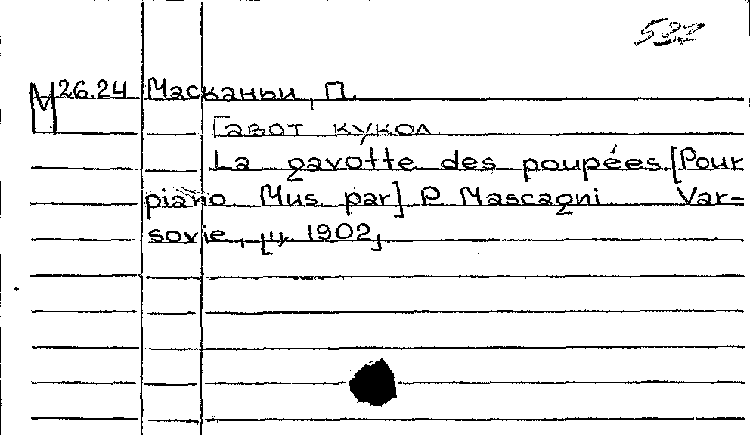 532
М 26.24 Масканьи, П.
Гавот кукол
La gavotte des poupées. [Pour
piano. Mus. par] P. Mascagni. Var-
sovie, 1902,